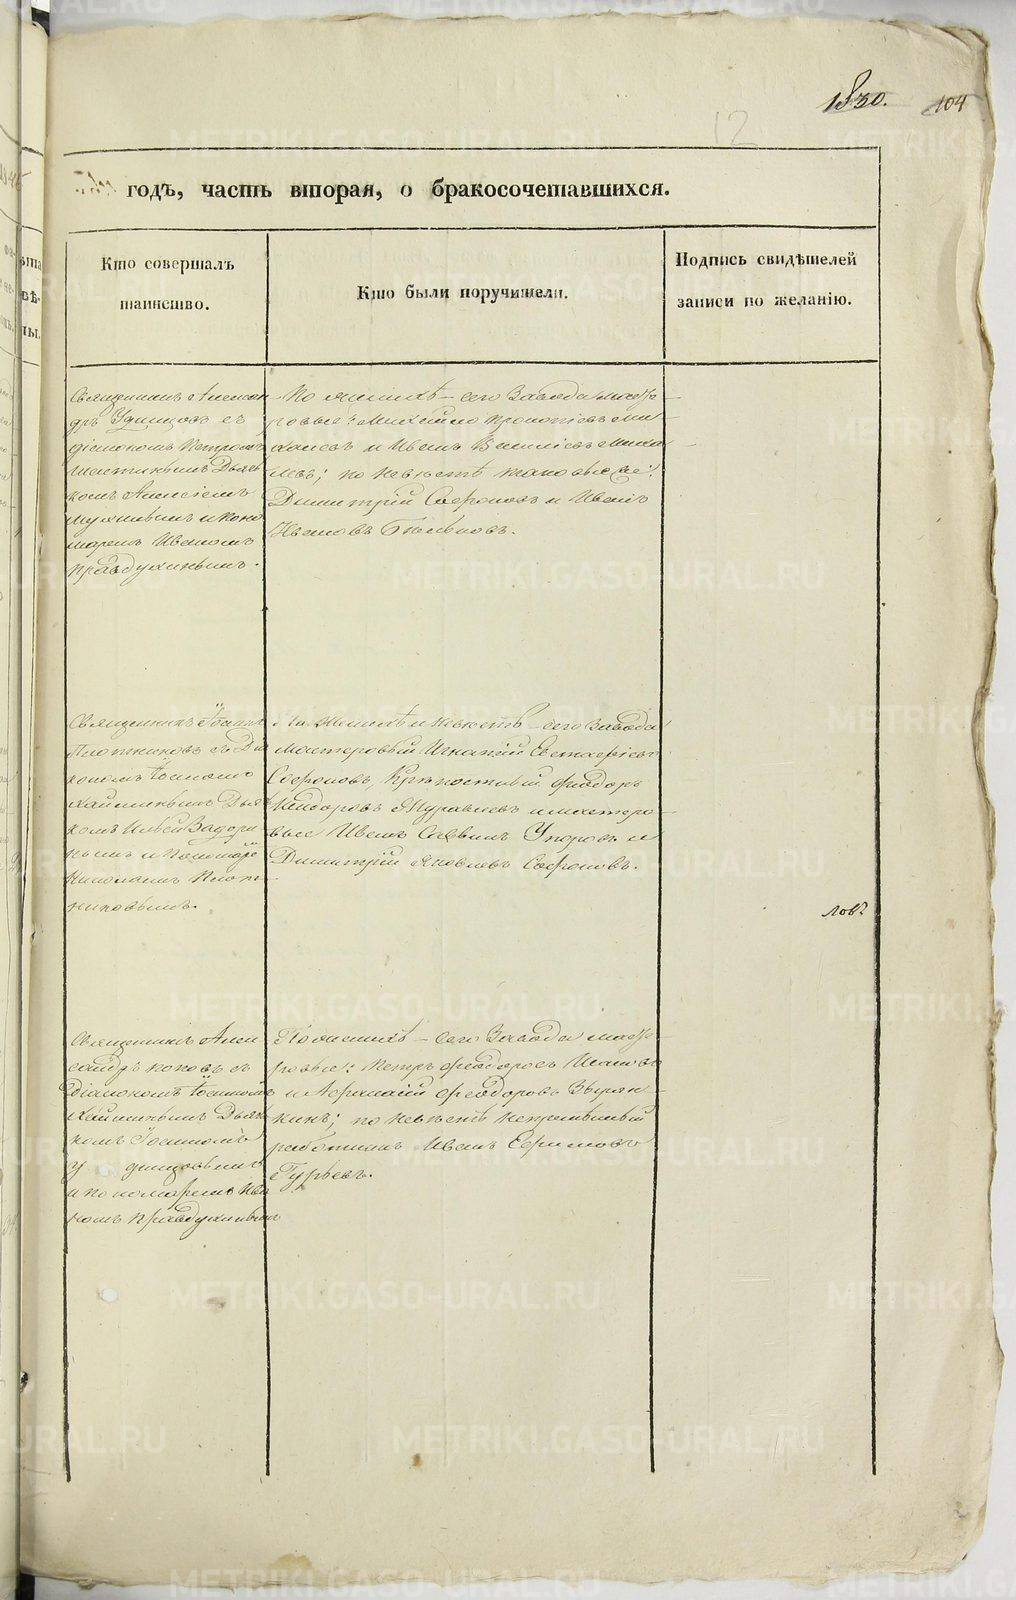 1830.
104
12
годъ, часть вторая, о бракосочетавшихся.
Кто совершалъ
таинство.
Кто были поручители.
Подпись свидѣтелей
записи по желанію.
Священникъ Алексан
дръ Удинцовъ съ
діакономъ Петромъ
Дьяч
комъ Алексіемъ
и поно
маремъ Иваномъ
Правдухинымъ.
По женихѣ – сего Завода масте
ровые: Михайло Прокопіевъ Ми
халевъ и Иванъ Василіевъ Миха
левъ; по невѣстѣ таковые же:
Димитрій Сафоновъ и Иванъ
Ивановъ
Священникъ Іоаннъ
Плотниковъ съ Діа
кономъ Іоанномъ
Хайминымъ Дьяч
комъ Ильей Задори
нымъ и Пономаремъ
Николаемъ Плот
никовымъ.
По женихѣ и невѣстѣ – сего Завода
мастеровый Игнатій Евстафіевъ
Сафоновъ, Крѣпостный Феодоръ
Журавлевъ и мастеро
вые Иванъ Саввинъ Упоровъ и
Димитрій Яковлевъ Сафоновъ.
ловъ
Священникъ Алек
сандръ Поповъ съ
Діакономъ Іоанномъ
Хайминымъ Дьяч
комъ Іоанномъ
Удинцовымъ
и пономаремъ Ива
номъ Правдухинымъ
По женихѣ – сего Завода масте
ровые: Петръ Феодоровъ Исаковъ
и Афанасій Феодоровъ Зырян
кинъ; по невѣстѣ непремѣнный
работникъ Иванъ Ефимовъ
Гурьевъ.
METRIKI.GASO-URAL.RU